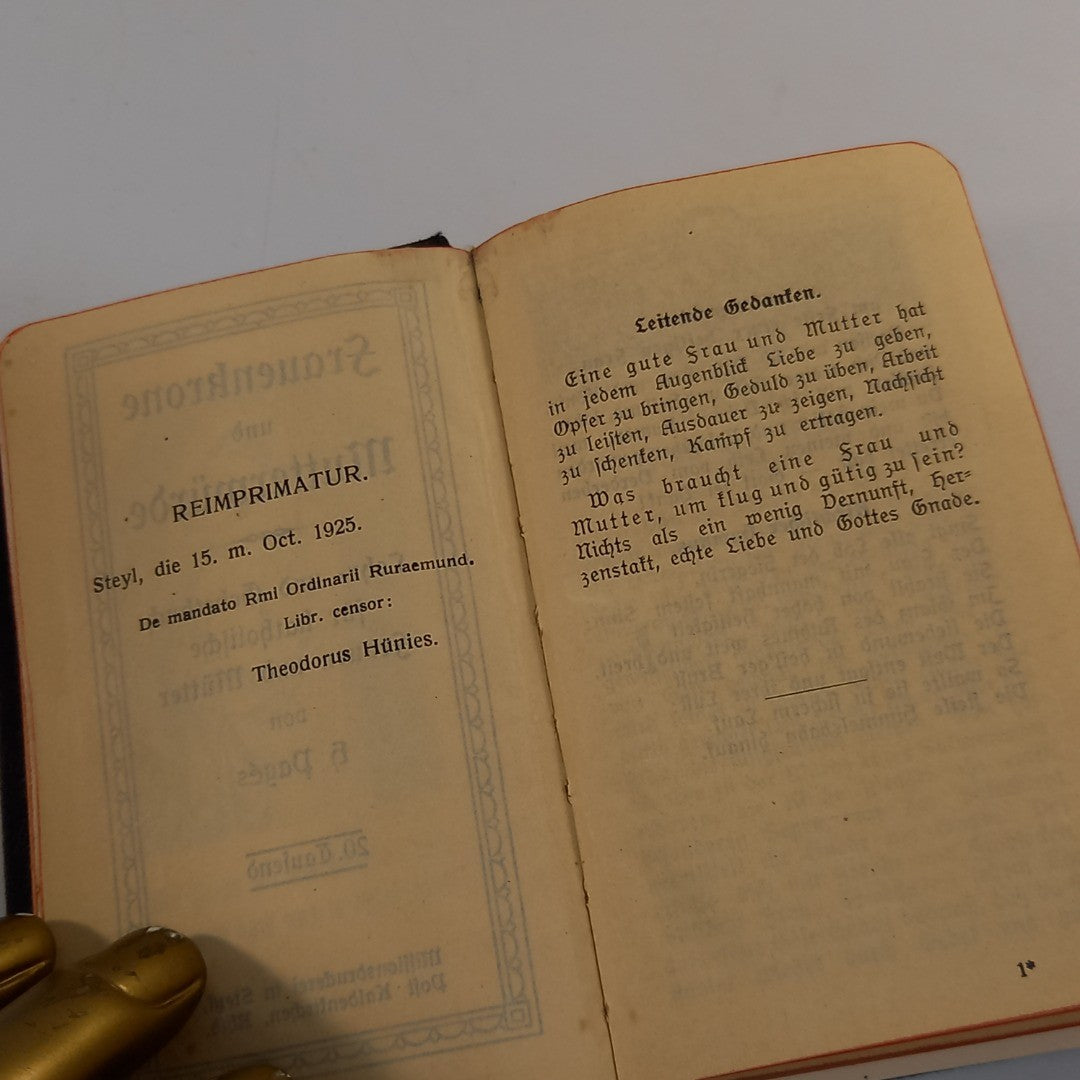 REIMPRIMATUR.
Steyl, die 15. m. Oct. 1925.
De mandato Rmi Ordinarii Ruraemund.
Libr. censor:
Theodorus Hünies.
Leitende Gedanken.
Eine gute Frau und Mutter hat
in jedem Augenblick Liebe zu geben,
Opfer zu bringen, Geduld zu üben, Arbeit
zu leisten, Ausdauer zu zeigen, Nachsicht
zu schenken, Kampf zu ertragen.
Was braucht eine Frau und
Mutter, um klug und gütig zu sein?
Nichts als ein wenig Vernunft, Her-
zenstakt, echte Liebe und Gottes Gnade.
1*